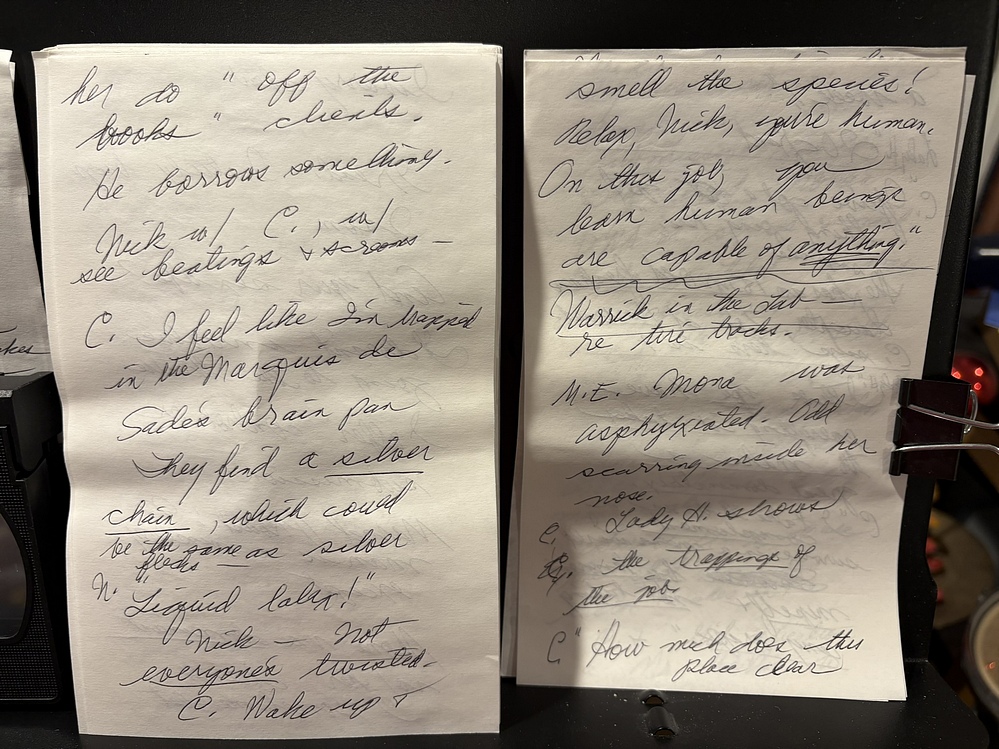 her do "off the
books" clients.
He borrows something.
Nick w/ C., w/
see beatings & screams —
C. I feel like I'm trapped
in the Marquis de
Sade's brain pan
They find a silver
chain, which could
be the same as silver
flecks —
N. "Liquid latex!"
Nick — Not
everyone's twisted.
C. Wake up &
smell the species!
Relax, Nick, you're human.
On this job, you
learn human beings
are capable of anything."
Warrick in the Lab —
re tire tracks.
M.E. Mona was
asphyxiated. Old
scarring inside her
nose.
Lady H. shows
C.
G. the trappings of
the job.
C "How much does this
place clear